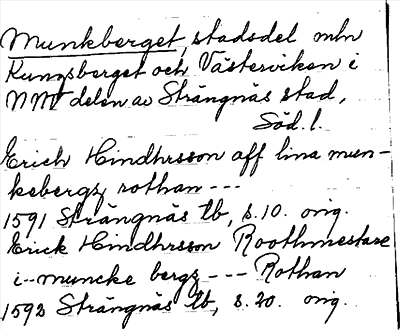 Munkberget, stadsdel mln
Kungsberget och Västerviken i
NNV delen av Strängnäs stad,
Söd. l.
Erich Hindhrsson aff lina mun-
kebergz rothan ---
1591 Strängnäs tb, s. 10. orig.
Erick Hindhrsson Roothmestare
i -- muncke bergz --- Rothan
1592 Strängnäs tb, s. 20. orig.